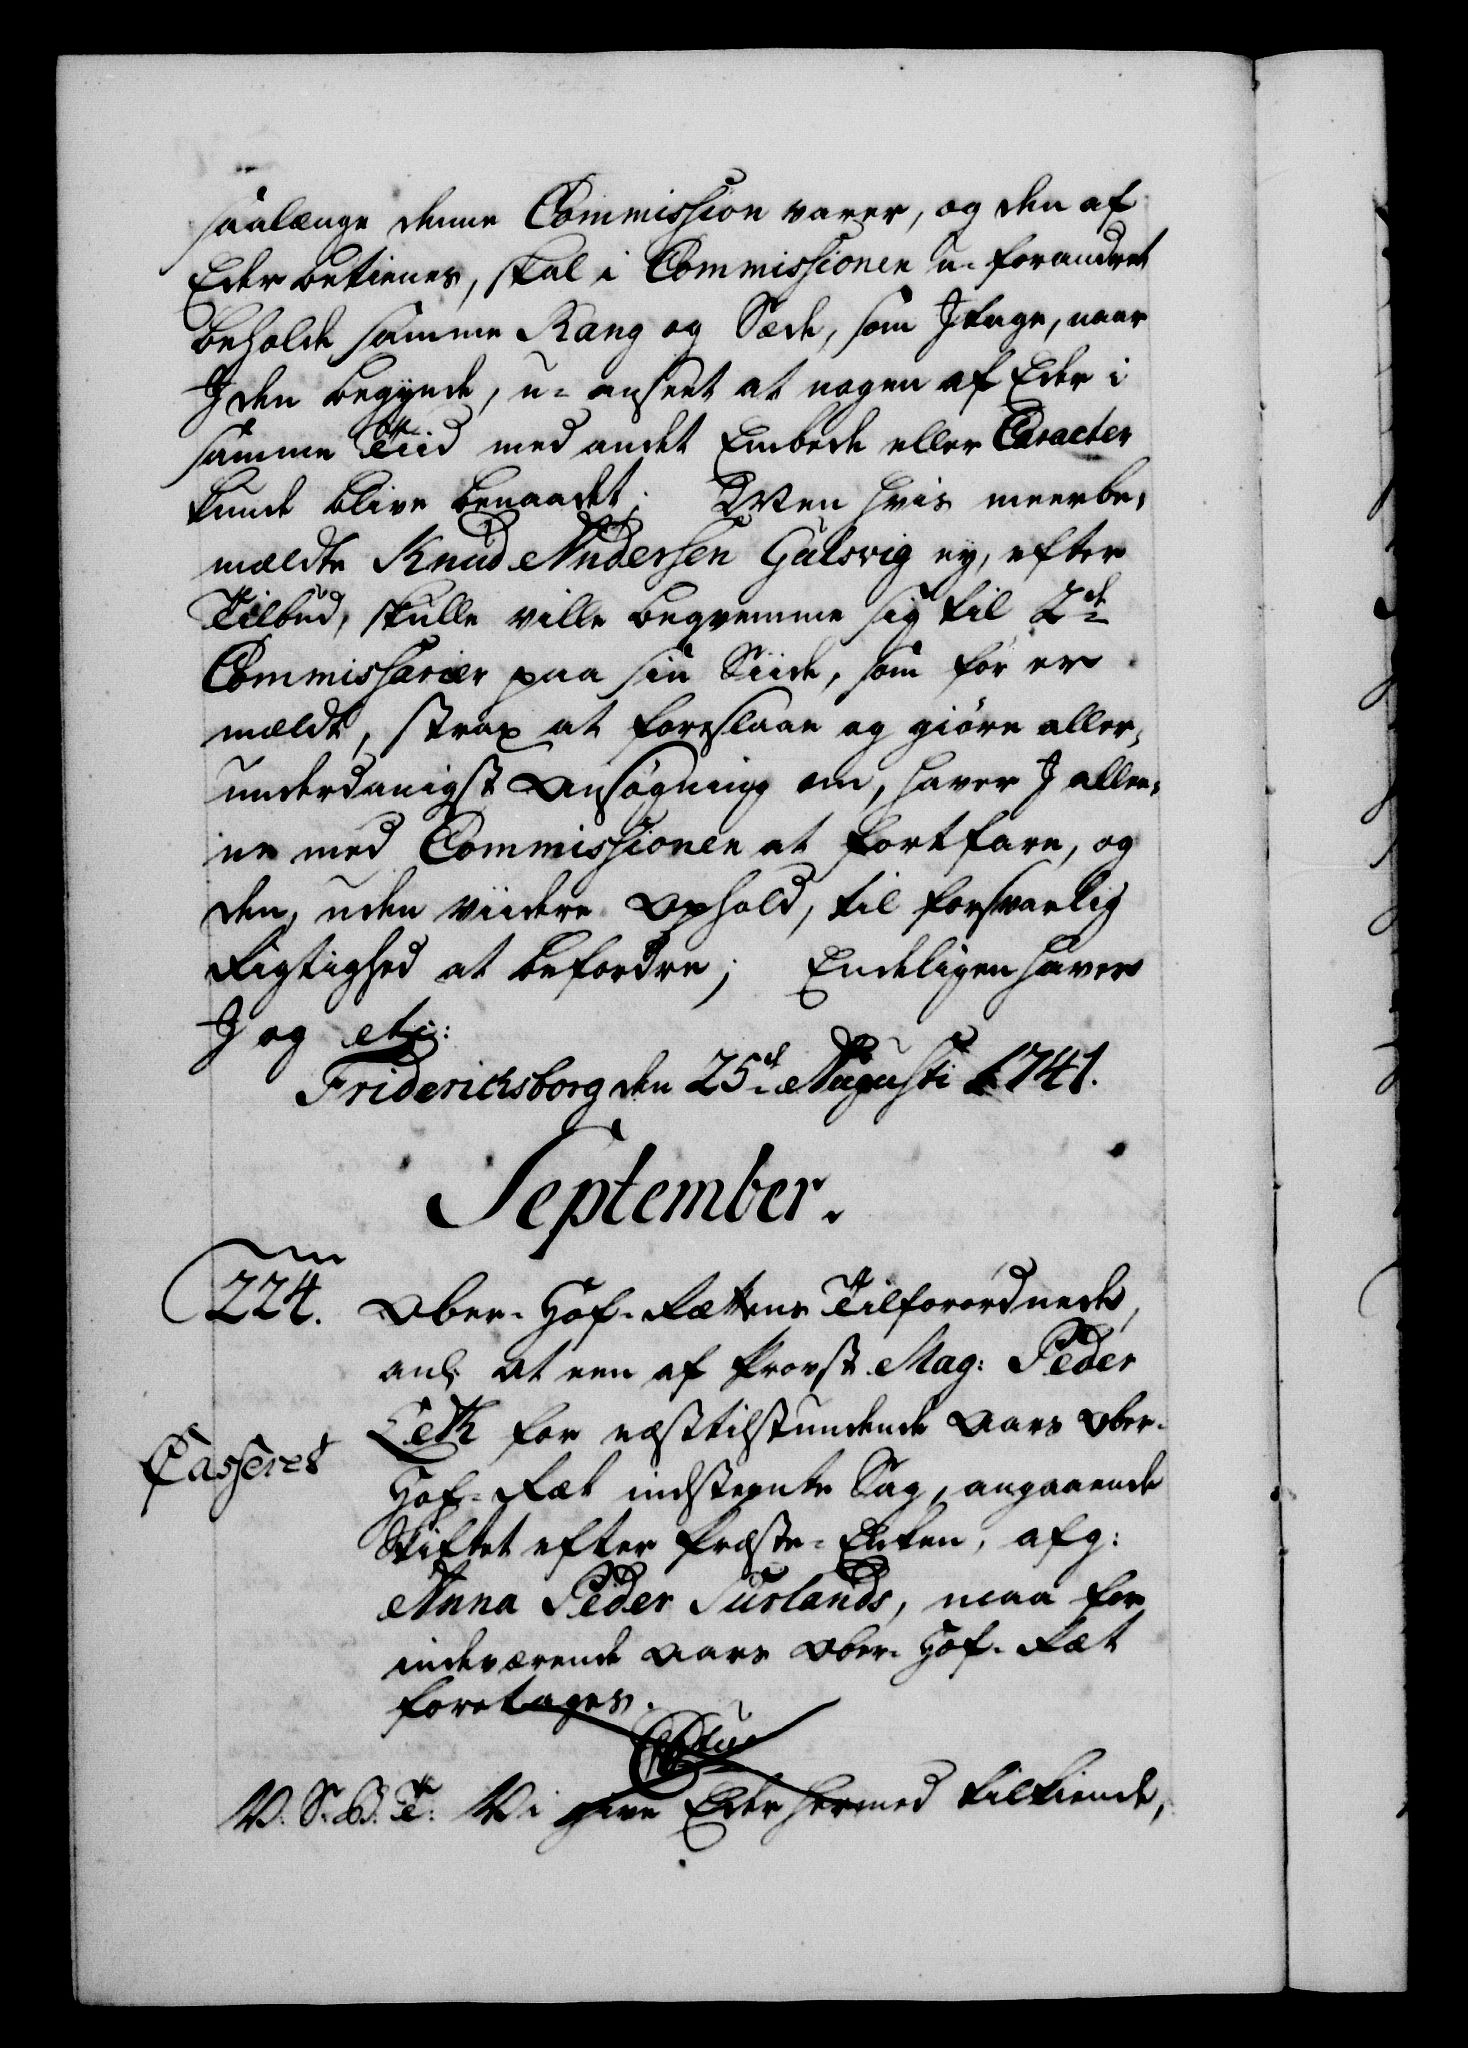 saalænge denne Commission varer, og den af
Eder betienes, skal i Commissionen u-forandret
beholde samme Rang og Sæde, som I tage, naar
I den begynde, u-anseet at nogen af Eder i
samme Tiid med andet Embede eller Caracter
kunde blive benaadet; Men hvis meerbe-
mældte Knud Andersen Gulsvig ey, efter
Tilbud, skulle ville beqvemme sig til 2de
Commissarier paa sin Siide, som før er
mældt, strax at foreslaae og giøre aller-
underdanigst Ansøgning om, haver I allee-
ne med Commissionen at fortfare, og
den, uden viidere Ophold, til forsvarlig
Rigtighed at befordre; Endeligen haver
I og etc:
Friderichsborg den 25de Augusti 1741.
September.
224. Ober-Hof-Rættens Tilforordnede,
anl: at een af Provst Mag: Peder
Leth for næsttilstundende Aars Ober-
Casseret
Hof-Ræt indstevnte Sag, angaaende
Skiftet efter Præste-Enken, afg:
Anna Peder Juslands, maa for
indeværende Aars Ober-Hof-Ræt
foretages.
V. S. B. T: Vi give Eder hermed tilkiende,